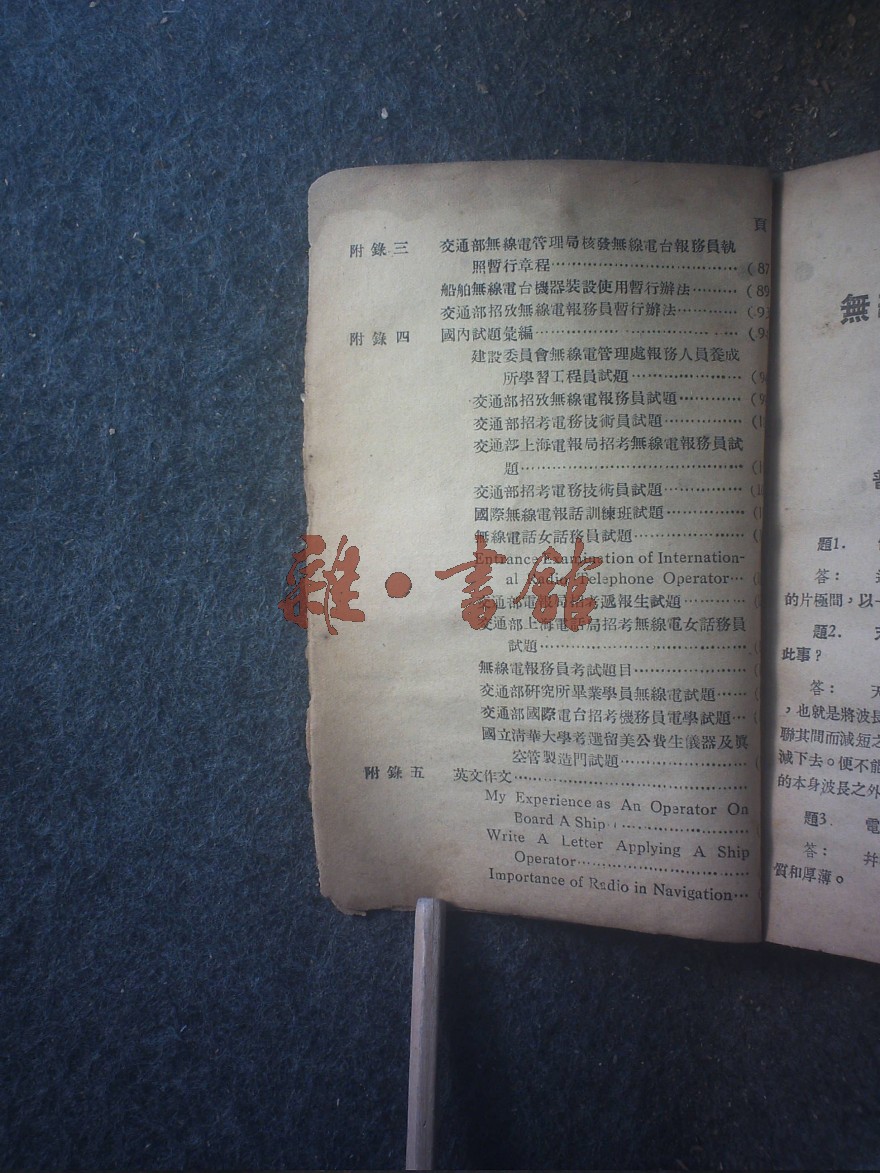 頁
附錄三 交通部無線電管理局核發無線電台報務員執
照暫行章程………(87
船舶無線電台機器裝設使用暫行辦法………(89
交通部招攷無線電報務員暫行辦法………(9
附錄四 國內試題彙編………(9
建設委員會無線電管理處報務人員養成
所學習工程員試題………(9
交通部招攷無線電報務員試題………(9
交通部招考電務技術員試題………(1
交通部上海電報局招考無線電報務員試
題………(1
交通部招考電務技術員試題………(1
國際無線電報話訓練班試題………(1
無線電話女話務員試題………(
Entrance Examination of Internation-
al Radio Telephone Operator…(
交通部電報局招考遞報生試題………(
交通部上海電話局招考無線電女話務員
試題………(
無線電報務員考試題目………(
交通部研究所畢業學員無線電試題……(
交通部國際電台招考機務員電學試題…(
國立清華大學考選留美公費生儀器及眞
空管製造門試題………(
附錄五 英文作文………
My Experience as An Operator On
Board A Ship………
Write A Letter Applying A Ship
Operator………
Importance of Radio in Navigation…(
無
題1.
答：
的片極間，以
題2. 天
此事？
答： 天
，也就是將波長
聯其間而減短之
減下去。便不能
的本身波長之外
題3. 電
答： 幷
質和厚薄。
雜·書館